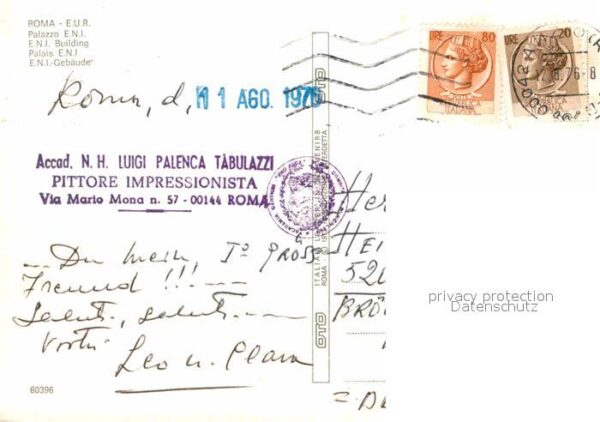 ROMA - E.U.R.
Palazzo E.N.I.
E.N.I. Building
Palais E.N.I.
E.N.I.-Gebäude
LIRE 80
LIRE 20
Roma, d, 11 AGO. 1976
Accad. N. H. LUIGI PALENCA TÀBULAZZI
PITTORE IMPRESSIONISTA
Via Mario Mona n. 57 - 00144 ROMA
... Du mein, Iº GROSS
Freund !!! ---
Salut, salut
Vostri
Leo u. Clara
60396
OTO
OTO
OTO
Her
HEI
526
BRÖ
privacy protection
Datenschutz